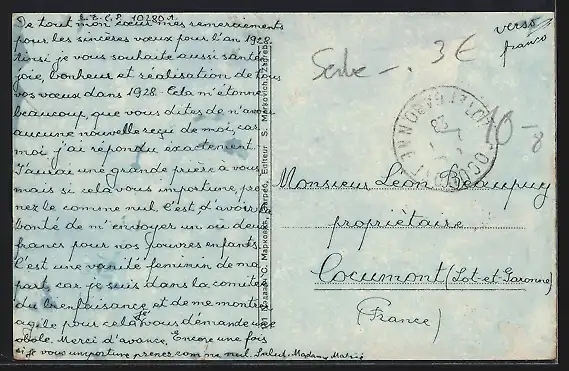 L.E.C.P. 10280 1.
De tout mon cœur mes remerciements
pour les sincères vœux pour l'an 1928.
Ainsi je vous souhaite aussi santé
joie, bonheur et réalisation de tous
vos vœux dans 1928. Cela m'étonne
beaucoup, que vous dites de n'avoir
aucune nouvelle reçu de moi, car
moi j'ai répondu exactement.
J'aurai une grande prière à vous
mais si cela vous importune, pre
nez le comme nul. C'est d'avoir la
bonté de m'envoyer un ou deux
francs pour nos pauvres enfants.
C'est une vanité féminin de ma
part car je suis dans la comitée
du bienfaisance et de me montre
agile pour cela je vous démande une
obole. Merci d'avance. Encore une fois
si je vous importune prenez comme nul. Salut
Editeur S. Marković, Zagreb
verso
franco
Serbe - . 3€
10-8
Monsieur Léon Beaupuy
propriétaire
Cocumont (Lot-et-Garonne)
(France)